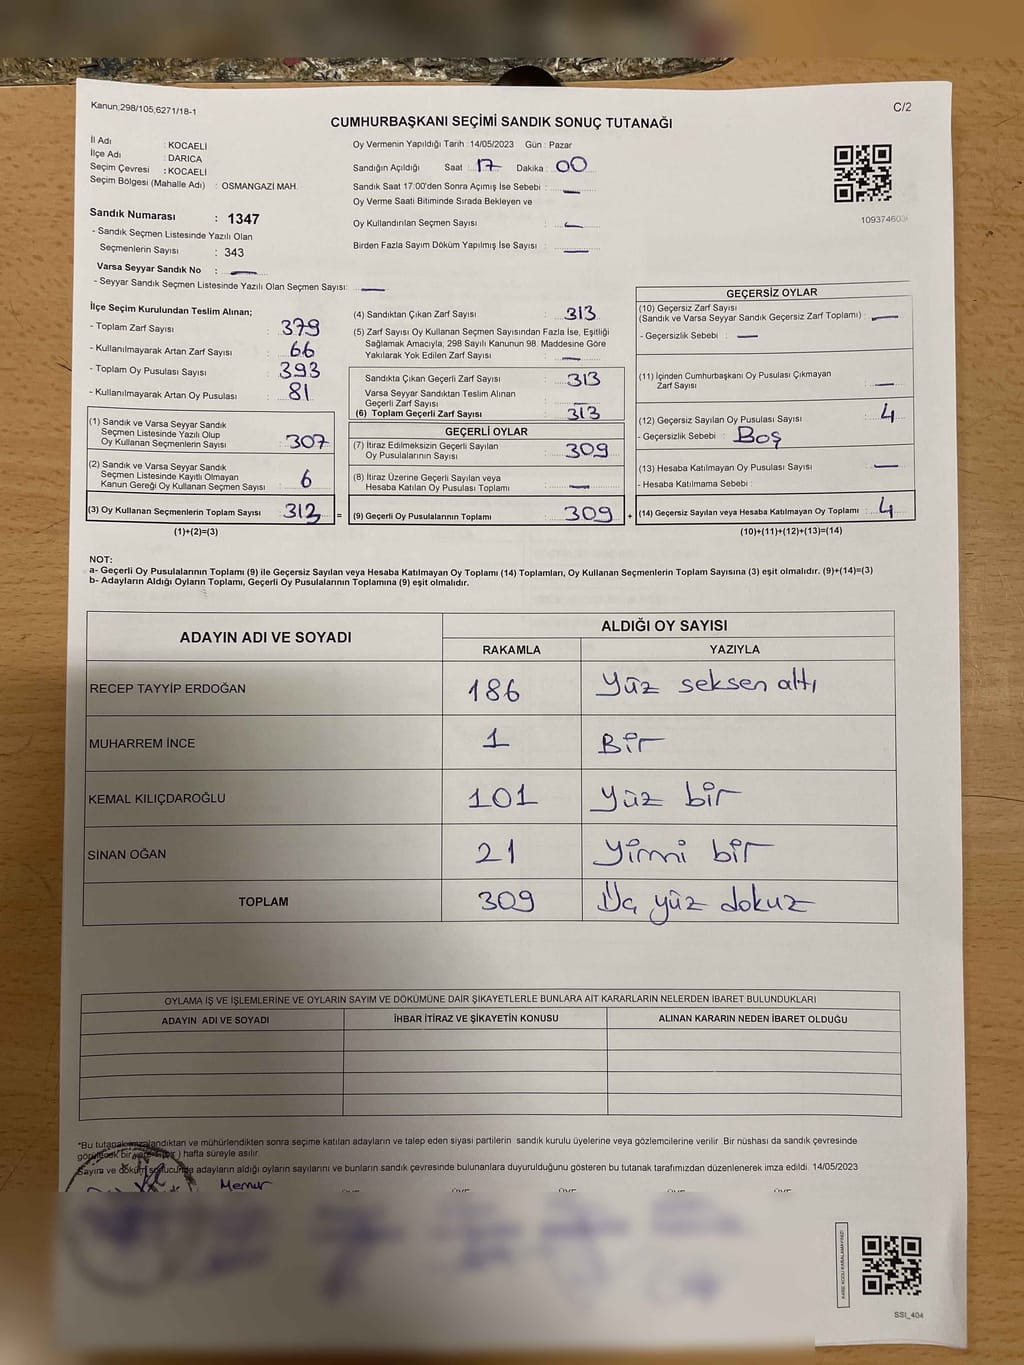 Kanun;298/105,6271/18-1
C/2
CUMHURBAŞKANI SEÇİMİ SANDIK SONUÇ TUTANAĞI
İl Adı : KOCAELİ
İlçe Adı : DARICA
Seçim Çevresi : KOCAELİ
Seçim Bölgesi (Mahalle Adı) : OSMANGAZİ MAH.
Sandık Numarası : 1347
- Sandık Seçmen Listesinde Yazılı Olan
Seçmenlerin Sayısı : 343
Varsa Seyyar Sandık No :
- Seyyar Sandık Seçmen Listesinde Yazılı Olan Seçmen Sayısı:
Oy Vermenin Yapıldığı Tarih : 14/05/2023 Gün : Pazar
Sandığın Açıldığı Saat : 17 Dakika : 00
Sandık Saat 17:00'den Sonra Açımış İse Sebebi :
Oy Verme Saati Bitiminde Sırada Bekleyen ve
Oy Kullandırılan Seçmen Sayısı :
Birden Fazla Sayım Döküm Yapılmış İse Sayısı :
109374603
İlçe Seçim Kurulundan Teslim Alınan;
- Toplam Zarf Sayısı : 379
- Kullanılmayarak Artan Zarf Sayısı : 66
- Toplam Oy Pusulası Sayısı : 393
- Kullanılmayarak Artan Oy Pusulası : 81
(1) Sandık ve Varsa Seyyar Sandık
Seçmen Listesinde Yazılı Olup
Oy Kullanan Seçmenlerin Sayısı : 307
(2) Sandık ve Varsa Seyyar Sandık
Seçmen Listesinde Kayıtlı Olmayan
Kanun Gereği Oy Kullanan Seçmen Sayısı : 6
(3) Oy Kullanan Seçmenlerin Toplam Sayısı : 313
(1)+(2)=(3)
=
(4) Sandıktan Çıkan Zarf Sayısı : 313
(5) Zarf Sayısı Oy Kullanan Seçmen Sayısından Fazla İse, Eşitliği
Sağlamak Amacıyla; 298 Sayılı Kanunun 98. Maddesine Göre
Yakılarak Yok Edilen Zarf Sayısı :
Sandıkta Çıkan Geçerli Zarf Sayısı : 313
Varsa Seyyar Sandıktan Teslim Alınan
Geçerli Zarf Sayısı :
(6) Toplam Geçerli Zarf Sayısı : 313
GEÇERLİ OYLAR
(7) İtiraz Edilmeksizin Geçerli Sayılan
Oy Pusulalarının Sayısı : 309
(8) İtiraz Üzerine Geçerli Sayılan veya
Hesaba Katılan Oy Pusulası Toplamı :
(9) Geçerli Oy Pusulalarının Toplamı : 309
+
GEÇERSİZ OYLAR
(10) Geçersiz Zarf Sayısı
(Sandık ve Varsa Seyyar Sandık Geçersiz Zarf Toplamı) :
- Geçersizlik Sebebi :
(11) İçinden Cumhurbaşkanı Oy Pusulası Çıkmayan
Zarf Sayısı :
(12) Geçersiz Sayılan Oy Pusulası Sayısı : 4
- Geçersizlik Sebebi : Boş
(13) Hesaba Katılmayan Oy Pusulası Sayısı :
- Hesaba Katılmama Sebebi :
(14) Geçersiz Sayılan veya Hesaba Katılmayan Oy Toplamı : 4
(10)+(11)+(12)+(13)=(14)
NOT:
a- Geçerli Oy Pusulalarının Toplamı (9) ile Geçersiz Sayılan veya Hesaba Katılmayan Oy Toplamı (14) Toplamları, Oy Kullanan Seçmenlerin Toplam Sayısına (3) eşit olmalıdır. (9)+(14)=(3)
b- Adayların Aldığı Oyların Toplamı, Geçerli Oy Pusulalarının Toplamına (9) eşit olmalıdır.
ADAYIN ADI VE SOYADI
ALDIĞI OY SAYISI
RAKAMLA YAZIYLA
RECEP TAYYİP ERDOĞAN 186 Yüz seksen altı
MUHARREM İNCE 1 Bir
KEMAL KILIÇDAROĞLU 101 Yüz bir
SİNAN OĞAN 21 Yirmi bir
TOPLAM 309 Üç yüz dokuz
OYLAMA İŞ VE İŞLEMLERİNE VE OYLARIN SAYIM VE DÖKÜMÜNE DAİR ŞİKAYETLERLE BUNLARA AİT KARARLARIN NELERDEN İBARET BULUNDUKLARI
ADAYIN ADI VE SOYADI İHBAR İTİRAZ VE ŞİKAYETİN KONUSU ALINAN KARARIN NEDEN İBARET OLDUĞU
*Bu tutanak imzalandıktan ve mühürlendikten sonra seçime katılan adayların ve talep eden siyasi partilerin sandık kurulu üyelerine veya gözlemcilerine verilir. Bir nüshası da sandık çevresinde
hafta süreyle asılır.
Sayım ve döküm sonucunda adayların aldığı oyların sayılarını ve bunların sandık çevresinde bulunanlara duyurulduğunu gösteren bu tutanak tarafımızdan düzenlenerek imza edildi. 14/05/2023
Memur
ÜYE ÜYE ÜYE ÜYE ÜYE
SSI_404